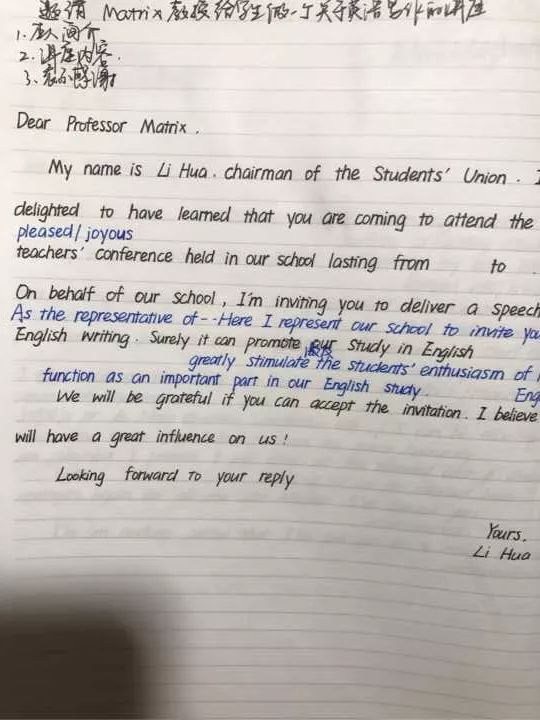 邀请 Matrix 教授给学生做一个关于英语写作的讲座
1. 个人简介
2. 讲座内容.
3. 表示感谢
Dear Professor Matrix.
My name is Li Hua. chairman of the Students' Union. I
delighted to have learned that you are coming to attend the
pleased/ joyous
teachers' conference held in our school lasting from to .
On behalf of our school, I'm inviting you to deliver a speech
As the representative of -- Here I represent our school to invite you
English writing. Surely it can promote our study in English
greatly stimulate the students' enthusiasm of
function as an important part in our English study. Eng
We will be grateful if you can accept the invitation. I believe
will have a great influence on us!
Looking forward to your reply
Yours.
Li Hua